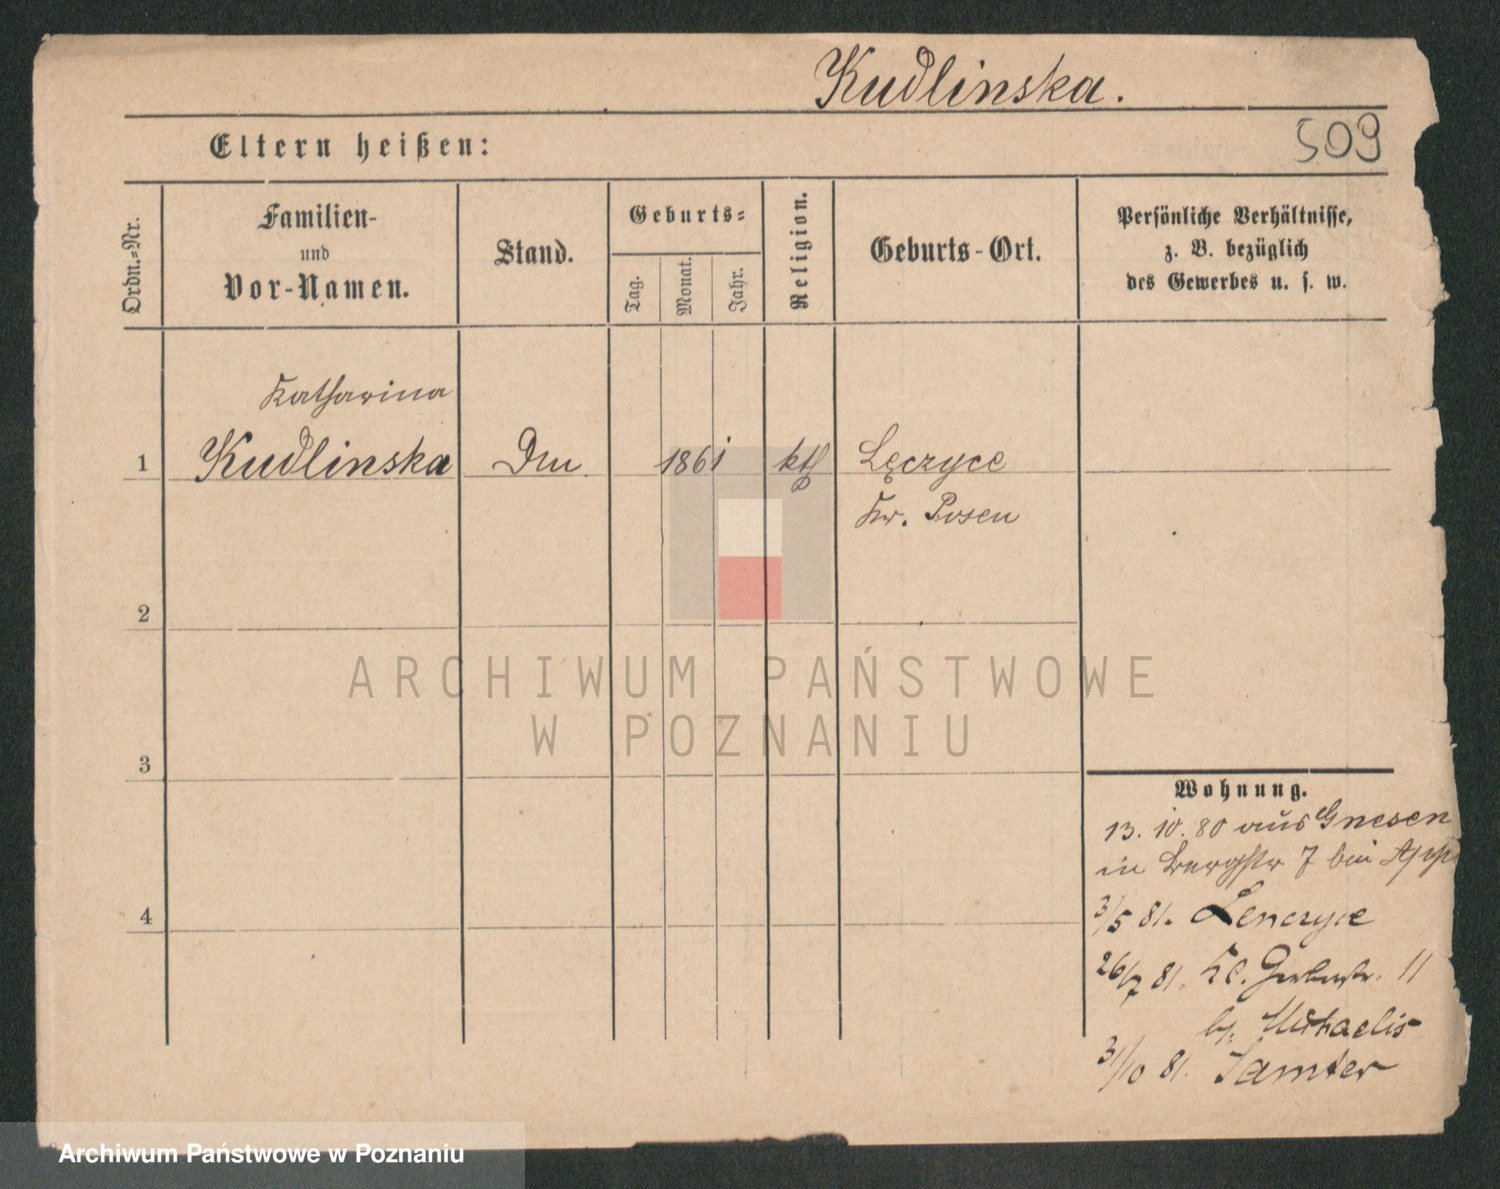 Kudlinska.
509
Eltern heißen:
Ordn.=Nr.
Familien-
und
Vor-Namen.
Stand.
Geburts=
Tag.
Monat.
Jahr.
Religion.
Geburts-Ort.
Persönliche Verhältnisse,
z. B. bezüglich
des Gewerbes u. s. w.
Katharina
1 Kudlinska 1861 kth Lęczyce
Kr. Posen
2
3
4
ARCHIWUM PAŃSTWOWE
W POZNANIU
Wohnung.
13. 10. 80 aus Gnesen
in Bergstr 7 bei
3/5 81. Lenczyce
26/7 81. Kl. Gerberstr. 11
by. Michaelis
31/10 81. Samter
Archiwum Państwowe w Poznaniu